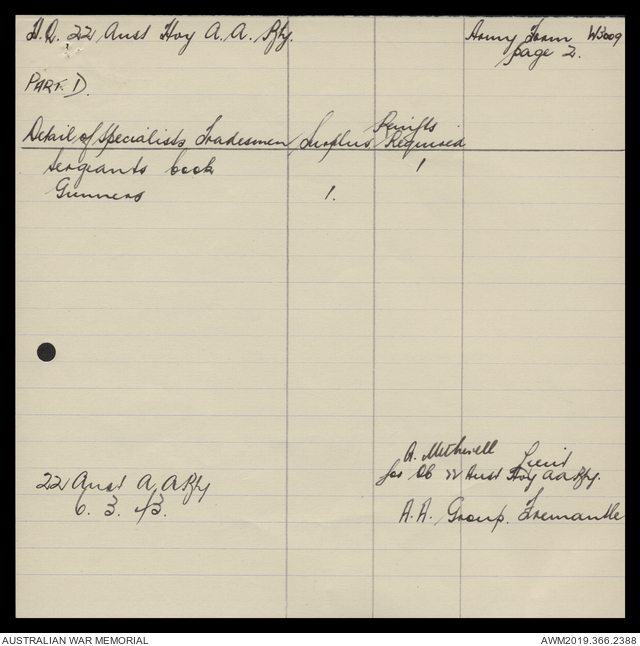 H.Q. 22 Aust Hvy A.A. Bty.
Army Form W3009
page 2.
PART. D.
Detail of Specialists Tradesmen Surplus Reinfts Required
Sergeants Cook 1
Gunners 1.
A. Metherell Lieut
for OC 22 Aust Hvy AA Bty.
22 Aust A.A Bty
6. 3. 43.
A.A. Group. Fremantle
AUSTRALIAN WAR MEMORIAL
AWM2019.366.2388